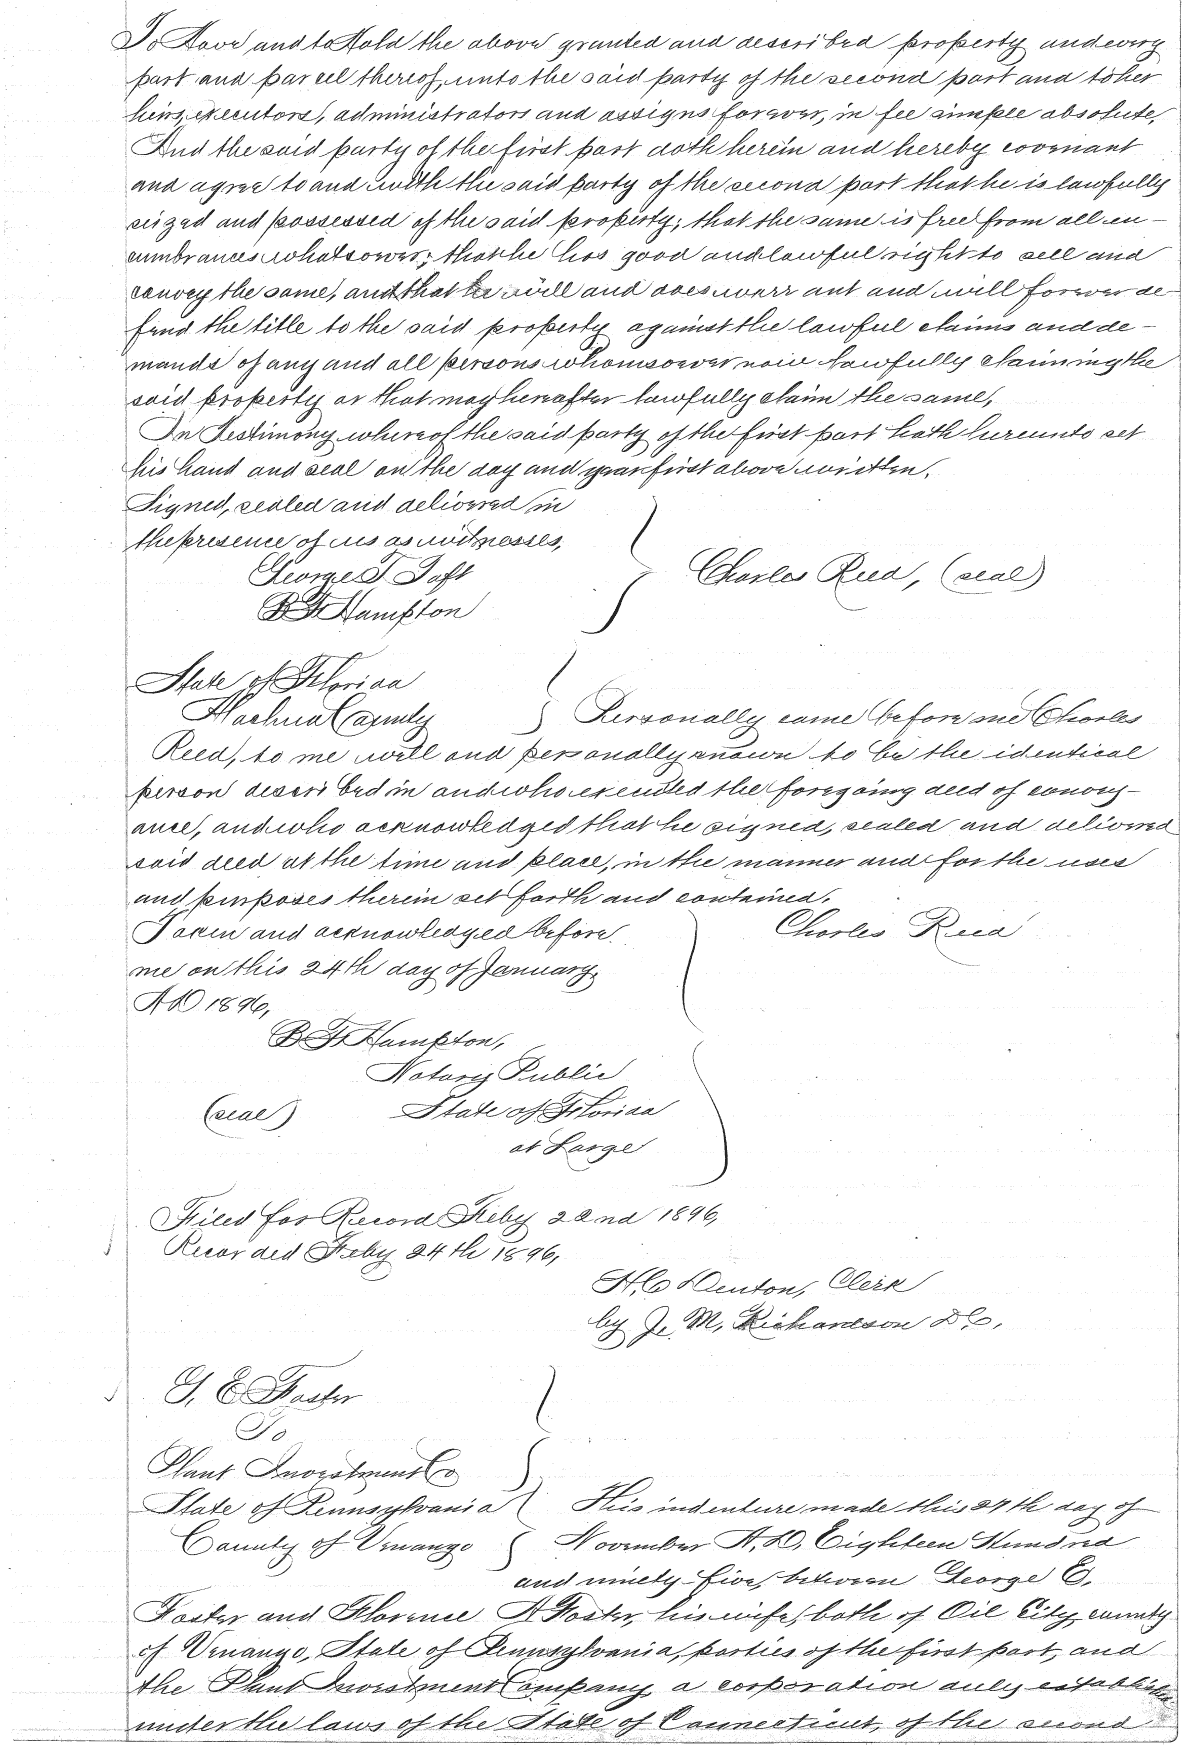 To Have and to Hold the above granted and described property and every
part and parcel thereof, unto the said party of the second part and to her
heirs, executors, administrators and assigns forever, in fee simple absolute,
And the said party of the first part doth herein and hereby covenant
and agree to and with the said party of the second part that he is lawfully
seized and possessed of the said property; that the same is free from all en-
cumbrances whatsoever; that he has good and lawful right to sell and
convey the same, and that he will and does warrant and will forever de-
fend the title to the said property against the lawful claims and de-
mands of any and all persons whomsoever now lawfully claiming the
said property or that may hereafter lawfully claim the same,
In Testimony whereof the said party of the first part hath hereunto set
his hand and seal on the day and year first above written.
Signed, sealed and delivered in
the presence of us as witnesses,
George T Taft
B F Hampton
Charles Reed, (seal)
State of Florida
Alachua County
Personally came before me Charles
Reed, to me well and personally known to be the identical
person described in and who executed the foregoing deed of convey-
ance, and who acknowledged that he signed, sealed and delivered
said deed at the time and place, in the manner and for the uses
and purposes therein set forth and contained.
Taken and acknowledged before
me on this 24th day of January,
A D 1896,
Charles Reed
B F Hampton,
Notary Public
(seal) State of Florida
at Large
Filed for Record Feby 22nd 1896,
Recorded Feby 24th 1896,
H C Denton, Clerk
by J. M, Richardson D C,
G. E Foster
To
Plant Investment Co
State of Pennsylvania
County of Venango
This indenture made this 27th day of
November A, D, Eighteen Hundred
and ninety-five, between George E,
Foster and Florence A Foster, his wife, both of Oil City, county
of Venango, State of Pennsylvania, parties of the first part, and
the Plant Investment Company a corporation duly establish
under the laws of the State of Connecticut, of the second